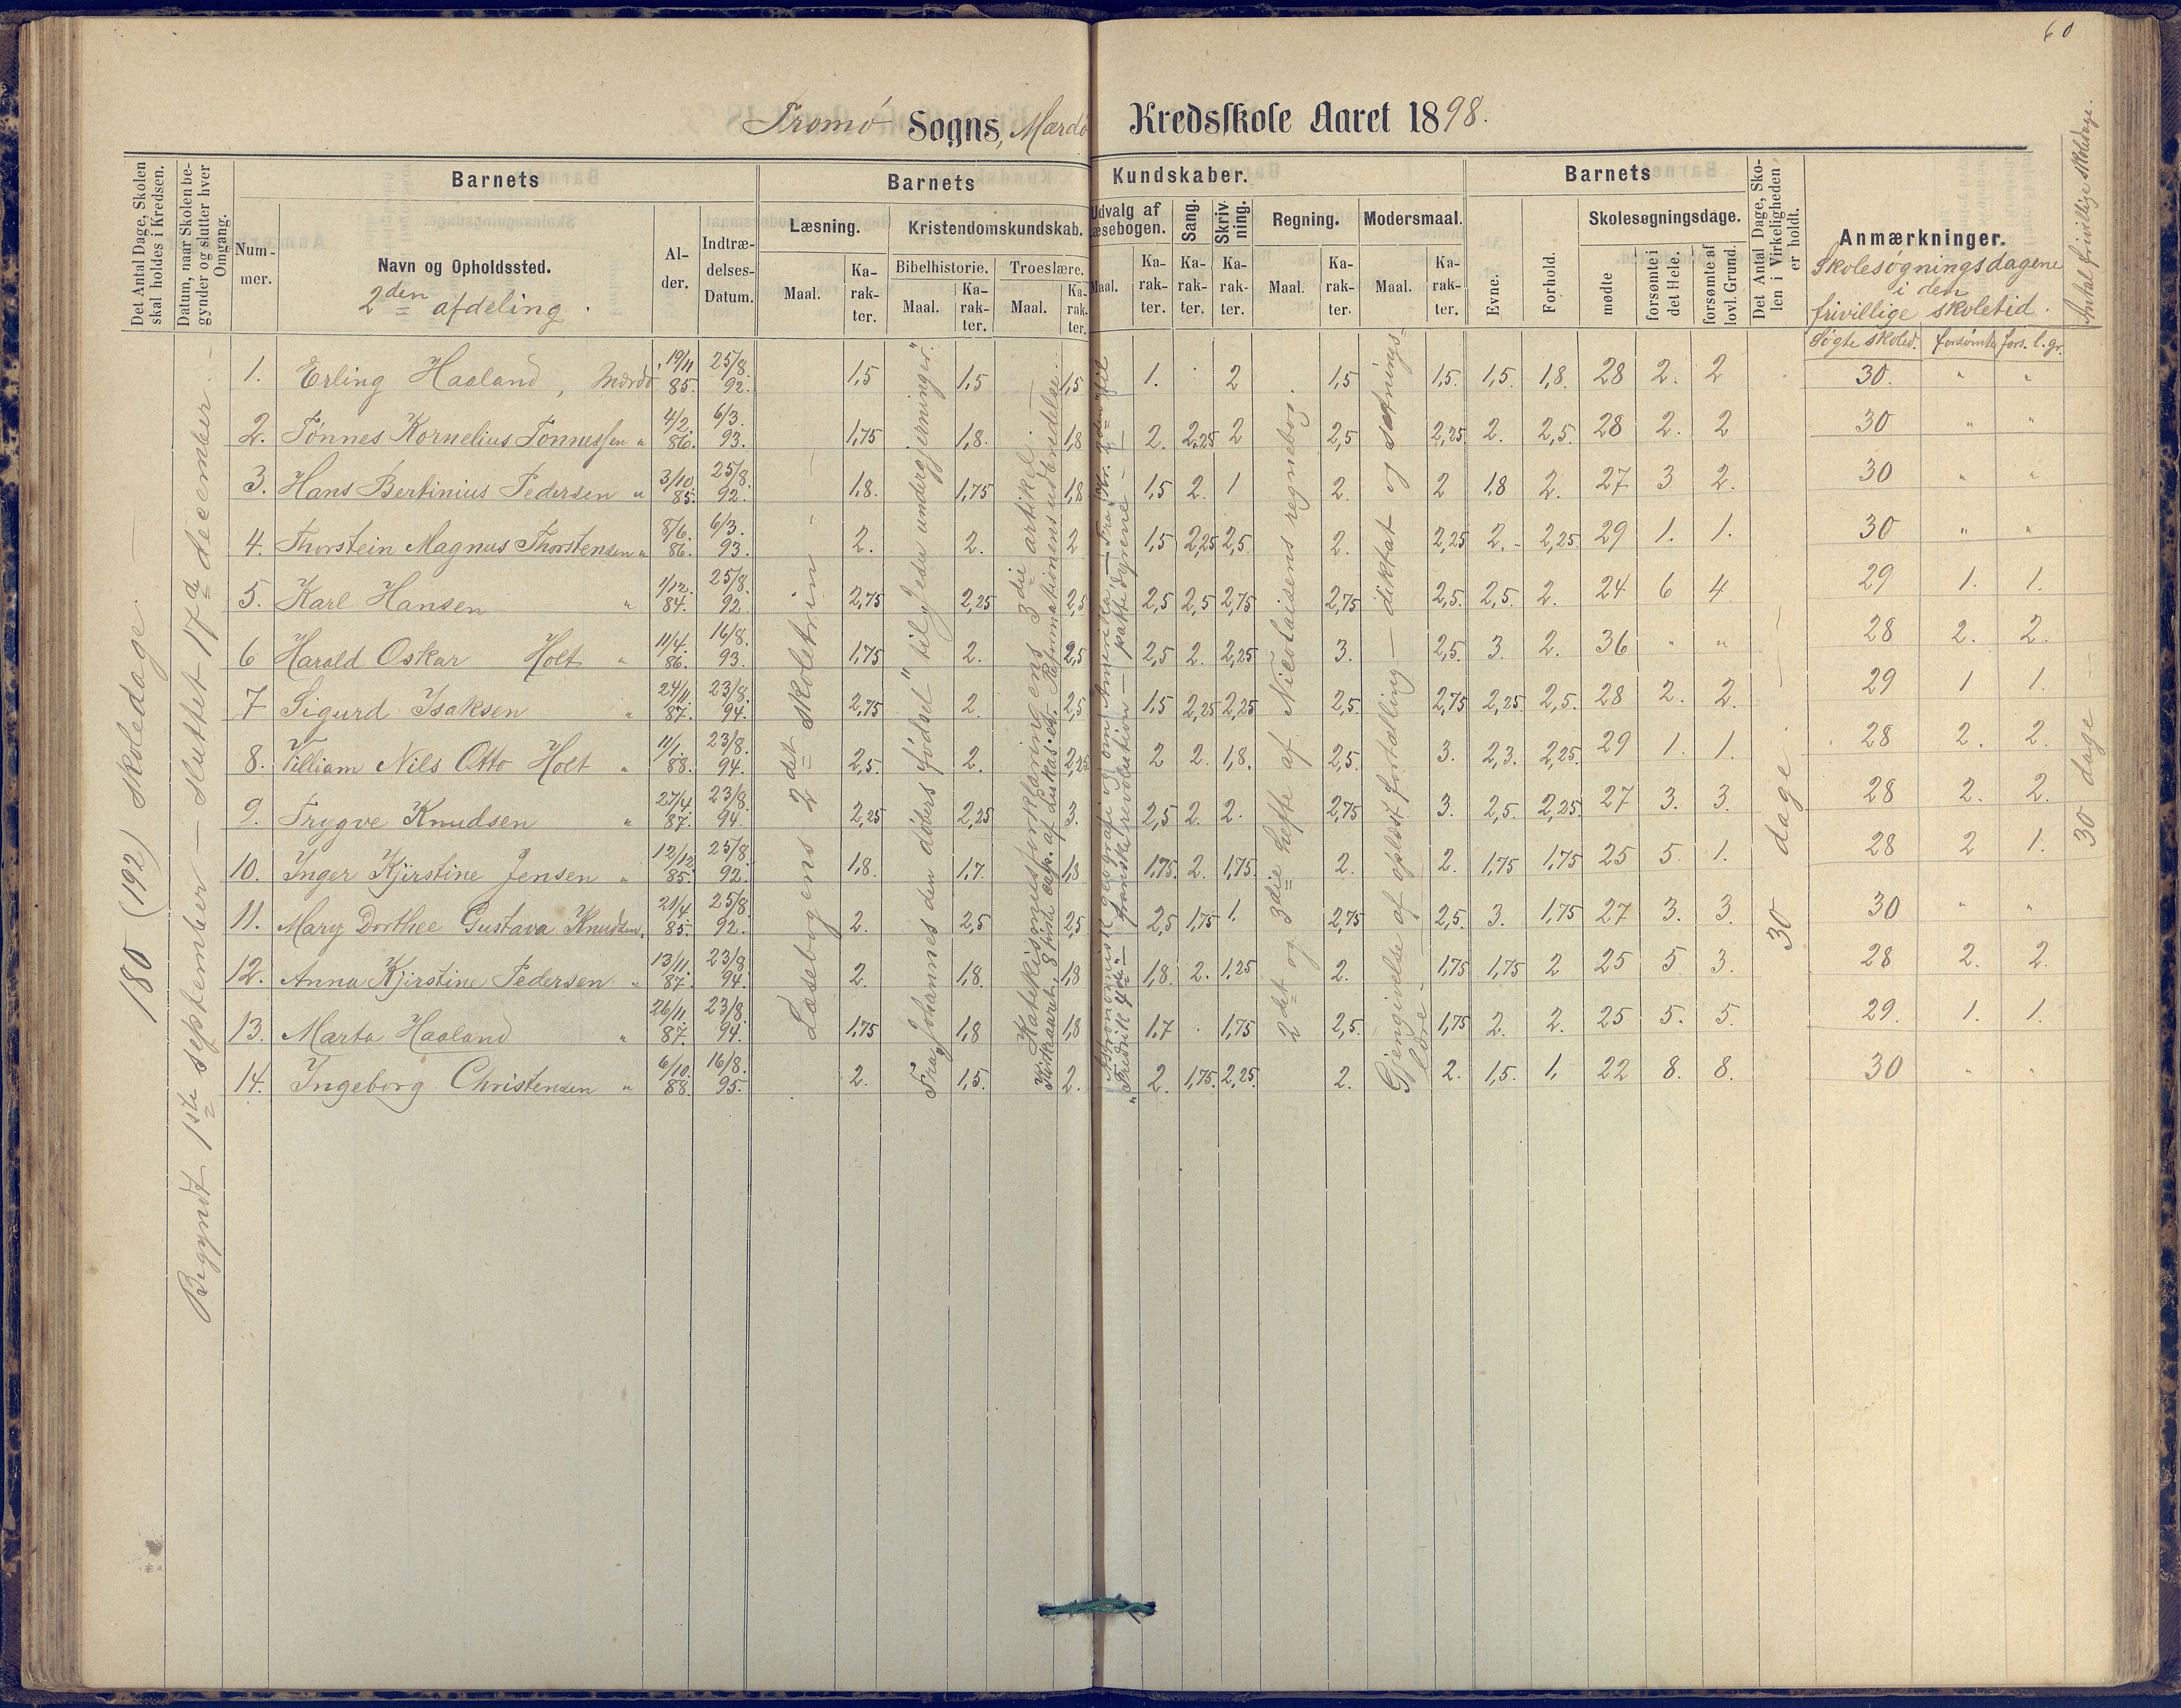 60
Tromö Sogns, Mærdö Kredsskole Aaret 1898.
Det Antal Dage, Skolen skal holdes i Kredsen.
Datum, naar Skolen begynder og slutter hver Omgang.
Barnets
Nummer.
Navn og Opholdssted.
2den afdeling.
Alder.
Indtrædelses-Datum.
Barnets Kundskaber.
Læsning.
Maal.
Karakter.
Kristendomskundskab.
Bibelhistorie.
Maal.
Karakter.
Troeslære.
Maal.
Karakter.
Udvalg af Læsebogen.
Maal.
Karakter.
Sang.
Karakter.
Skrivning.
Karakter.
Regning.
Maal.
Karakter.
Modersmaal.
Maal.
Karakter.
Barnets
Evne.
Forhold.
Skolesøgningsdage.
mødte
forsømte i det Hele.
forsømte af lovl. Grund.
Det Antal Dage, Skolen i Virkeligheden er holdt.
Anmærkninger.
Skolesøgningsdagene
i den
frivillige skoletid.
Søgte skoled. forsømte fors. l. gr.
Antal frivillige skoledage.
180 (192) skoledage.
Begyndt 1ste september — sluttet 17de december.
Læsebogens 2det skoletrin
Fra "Johannes den døbers fødsel" til "Jesu undergjerninger".
Katekismusforklaringens 3die artikel.
2det og 3die hefte af Nicolaisens regnebog.
Gjengivelse af oplæst fortælling — diktat og sætningslære.
30 dage.
30 dage
1. Erling Haaland, Mærdö 19/11 85. 25/8. 92. 1,5 1,5 1,5 1. 2 1,5 1,5. 1,5. 1,8. 28 2. 2 30. " "
2. Tönnes Kornelius Tönnessen " 4/2. 86. 6/3. 93. 1,75 1,8. 1,8 2. 2,25 2 2,5 2,25 2. 2,5. 28 2. 2 30 " "
3. Hans Bertinius Pedersen " 3/10 85. 25/8. 92. 1,8. 1,75 1,8 1,5 2. 1 2. 2 1,8 2. 27 3 2. 30 " "
4. Thorstein Magnus Thorstensen " 8/6. 86. 6/3. 93. 2. 2. 2 1,5 2,25 2,5. 2. 2,25 2. 2,25 29 1. 1. 30 " "
5. Karl Hansen " 1/12. 84. 25/8. 92 2,75 2,25 2,5 2,5 2,5 2,75 2,75 2,5. 2,5. 2. 24 6 4 29 1. 1.
6 Harald Oskar Holt " 11/4. 86. 16/8. 93. 1,75 2. 2,5 2,5 2. 2,25 3. 2,5. 3. 2. 36 " " 28 2. 2.
7 Sigurd Isaksen " 24/11 87. 23/8. 94. 2,75 2. 2,5 1,5 2,25 2,25 2,5. 2,75 2,25. 2,5. 28 2. 2. 29 1 1.
8. Villiam Nils Otto Holt " 11/1. 88. 23/8. 94. 2,5. 2. 2,25 2 2. 1,8. 2,5. 3. 2,3. 2,25. 29 1. 1. 28 2. 2.
9. Trygve Knudsen " 27/4 87. 23/8. 94. 2,25 2,25 3. 2,5 2. 2. 2,75 3. 2,5. 2,25. 27 3. 3. 28 2. 2.
10. Inger Kjirstine Jensen " 12/12 85. 25/8. 92. 1,8. 1,7. 1,8 1,75. 2. 1,75. 2. 2. 1,75 1,75 25 5. 1. 28 2 1.
11. Mary Dorthee Gustava Knudsen " 21/4 85. 25/8. 92. 2. 2,5 2,5 2,5 1,75 1. 2,75 2,5. 3. 1,75 27 3. 3. 30 " "
12. Anna Kjirstine Pedersen " 13/11. 87. 23/8. 94. 2. 1,8. 1,8 1,8. 2. 1,25 2. 1,75 1,75 2 25 5 3. 28 2. 2.
13. Marta Haaland " 26/11 87. 23/8. 94. 1,75 1,8 1,8 1,7 1,75 2,5. 1,75 2. 2. 25 5. 5. 29. 1. 1.
14. Ingeborg Christensen " 6/10. 88. 16/8. 95. 2. 1,5. 2. 2. 1,75. 2,25. 2. 2. 1,5. 1, 22 8. 8. 30 " "